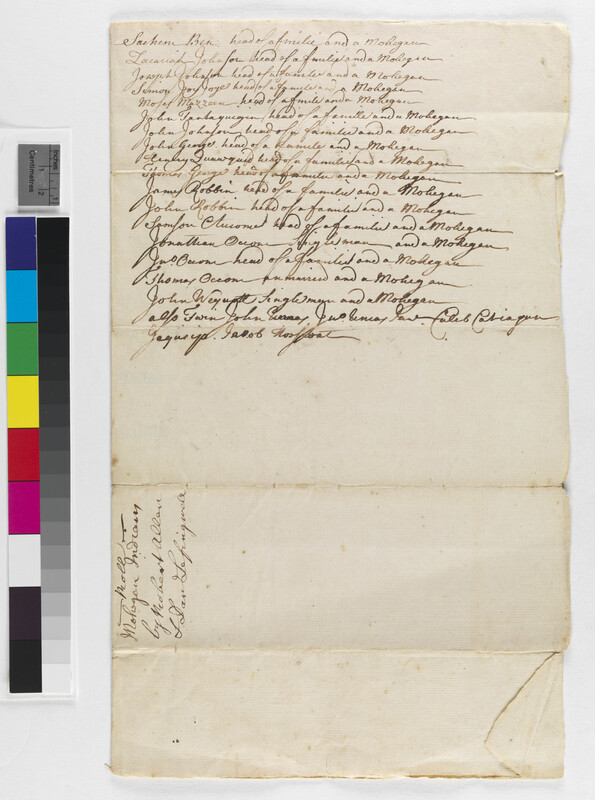 Sachem Ben head of a familie and a Mohegan
Zacariah Johnson head of a familie and a Mohegan
Joseph Johnson head of a familie and a Mohegan
Simon Joy Joys head of a familie and a Mohegan
Moses Mazzeen head of a familie and a Mohegan
John Tantaquigin head of a familie and a Mohegan
John Johnson head of a familie and a Mohegan
John George head of a familie and a Mohegan
Henry Quaquid head of a familie and a Mohegan
George head of a familie and a Mohegan
James Robbin head of a familie and a Mohegan
John Robbin head of a familie and a Mohegan
Samson head of a familie and a Mohegan
Jonathan Occom Singleman and a Mohegan
Jno Occom head of a familie and a Mohegan
Thomas Occom unmarried and a Mohegan
John Weyugh Singleman and a Mohegan
also Twin John Uncas, Jno Uncas Caleb
Jacob
Rolls
Mohegan Indians
by Robert Allen
& Dan
Centimetres
Inches